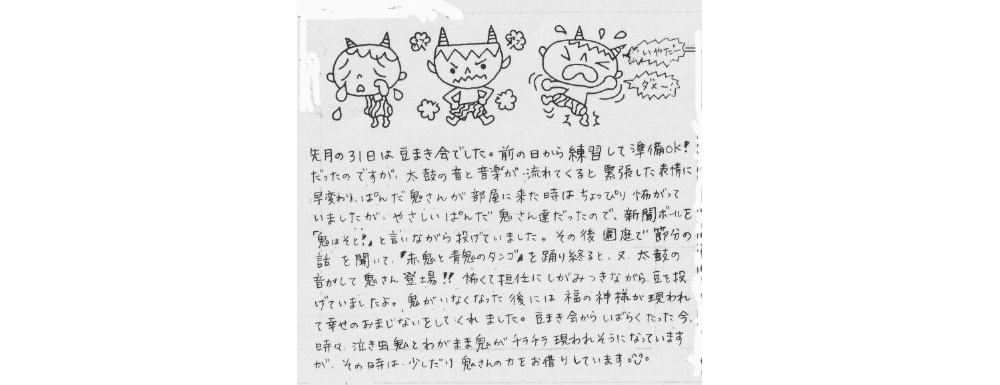 いやだー
ダメー!
先月の31日は豆まき会でした。前の日から練習して準備OK!
だったのですが、太鼓の音と音楽が流れてくると緊張した表情に
早変わり。ぱんだ鬼さんが部屋に来た時はちょっぴり怖がって
いましたが、やさしいぱんだ鬼さん達だったので、新聞ボールを
「鬼はそと!」と言いながら投げていました。その後園庭で節分の
話を聞いて、『赤鬼と青鬼のタンゴ』を踊り終ると、又、太鼓の
音がして鬼さん登場!!怖くて担任にしがみつきながら豆を投
げていましたよ。鬼がいなくなった後には福の神様が現われ
て幸せのおまじないをしてくれました。豆まき会からしばらくたった今、
時々、泣き虫鬼とわがまま鬼がチラチラ現われそうになっています
が、その時は、少しだけ鬼さんの力をお借りしています。